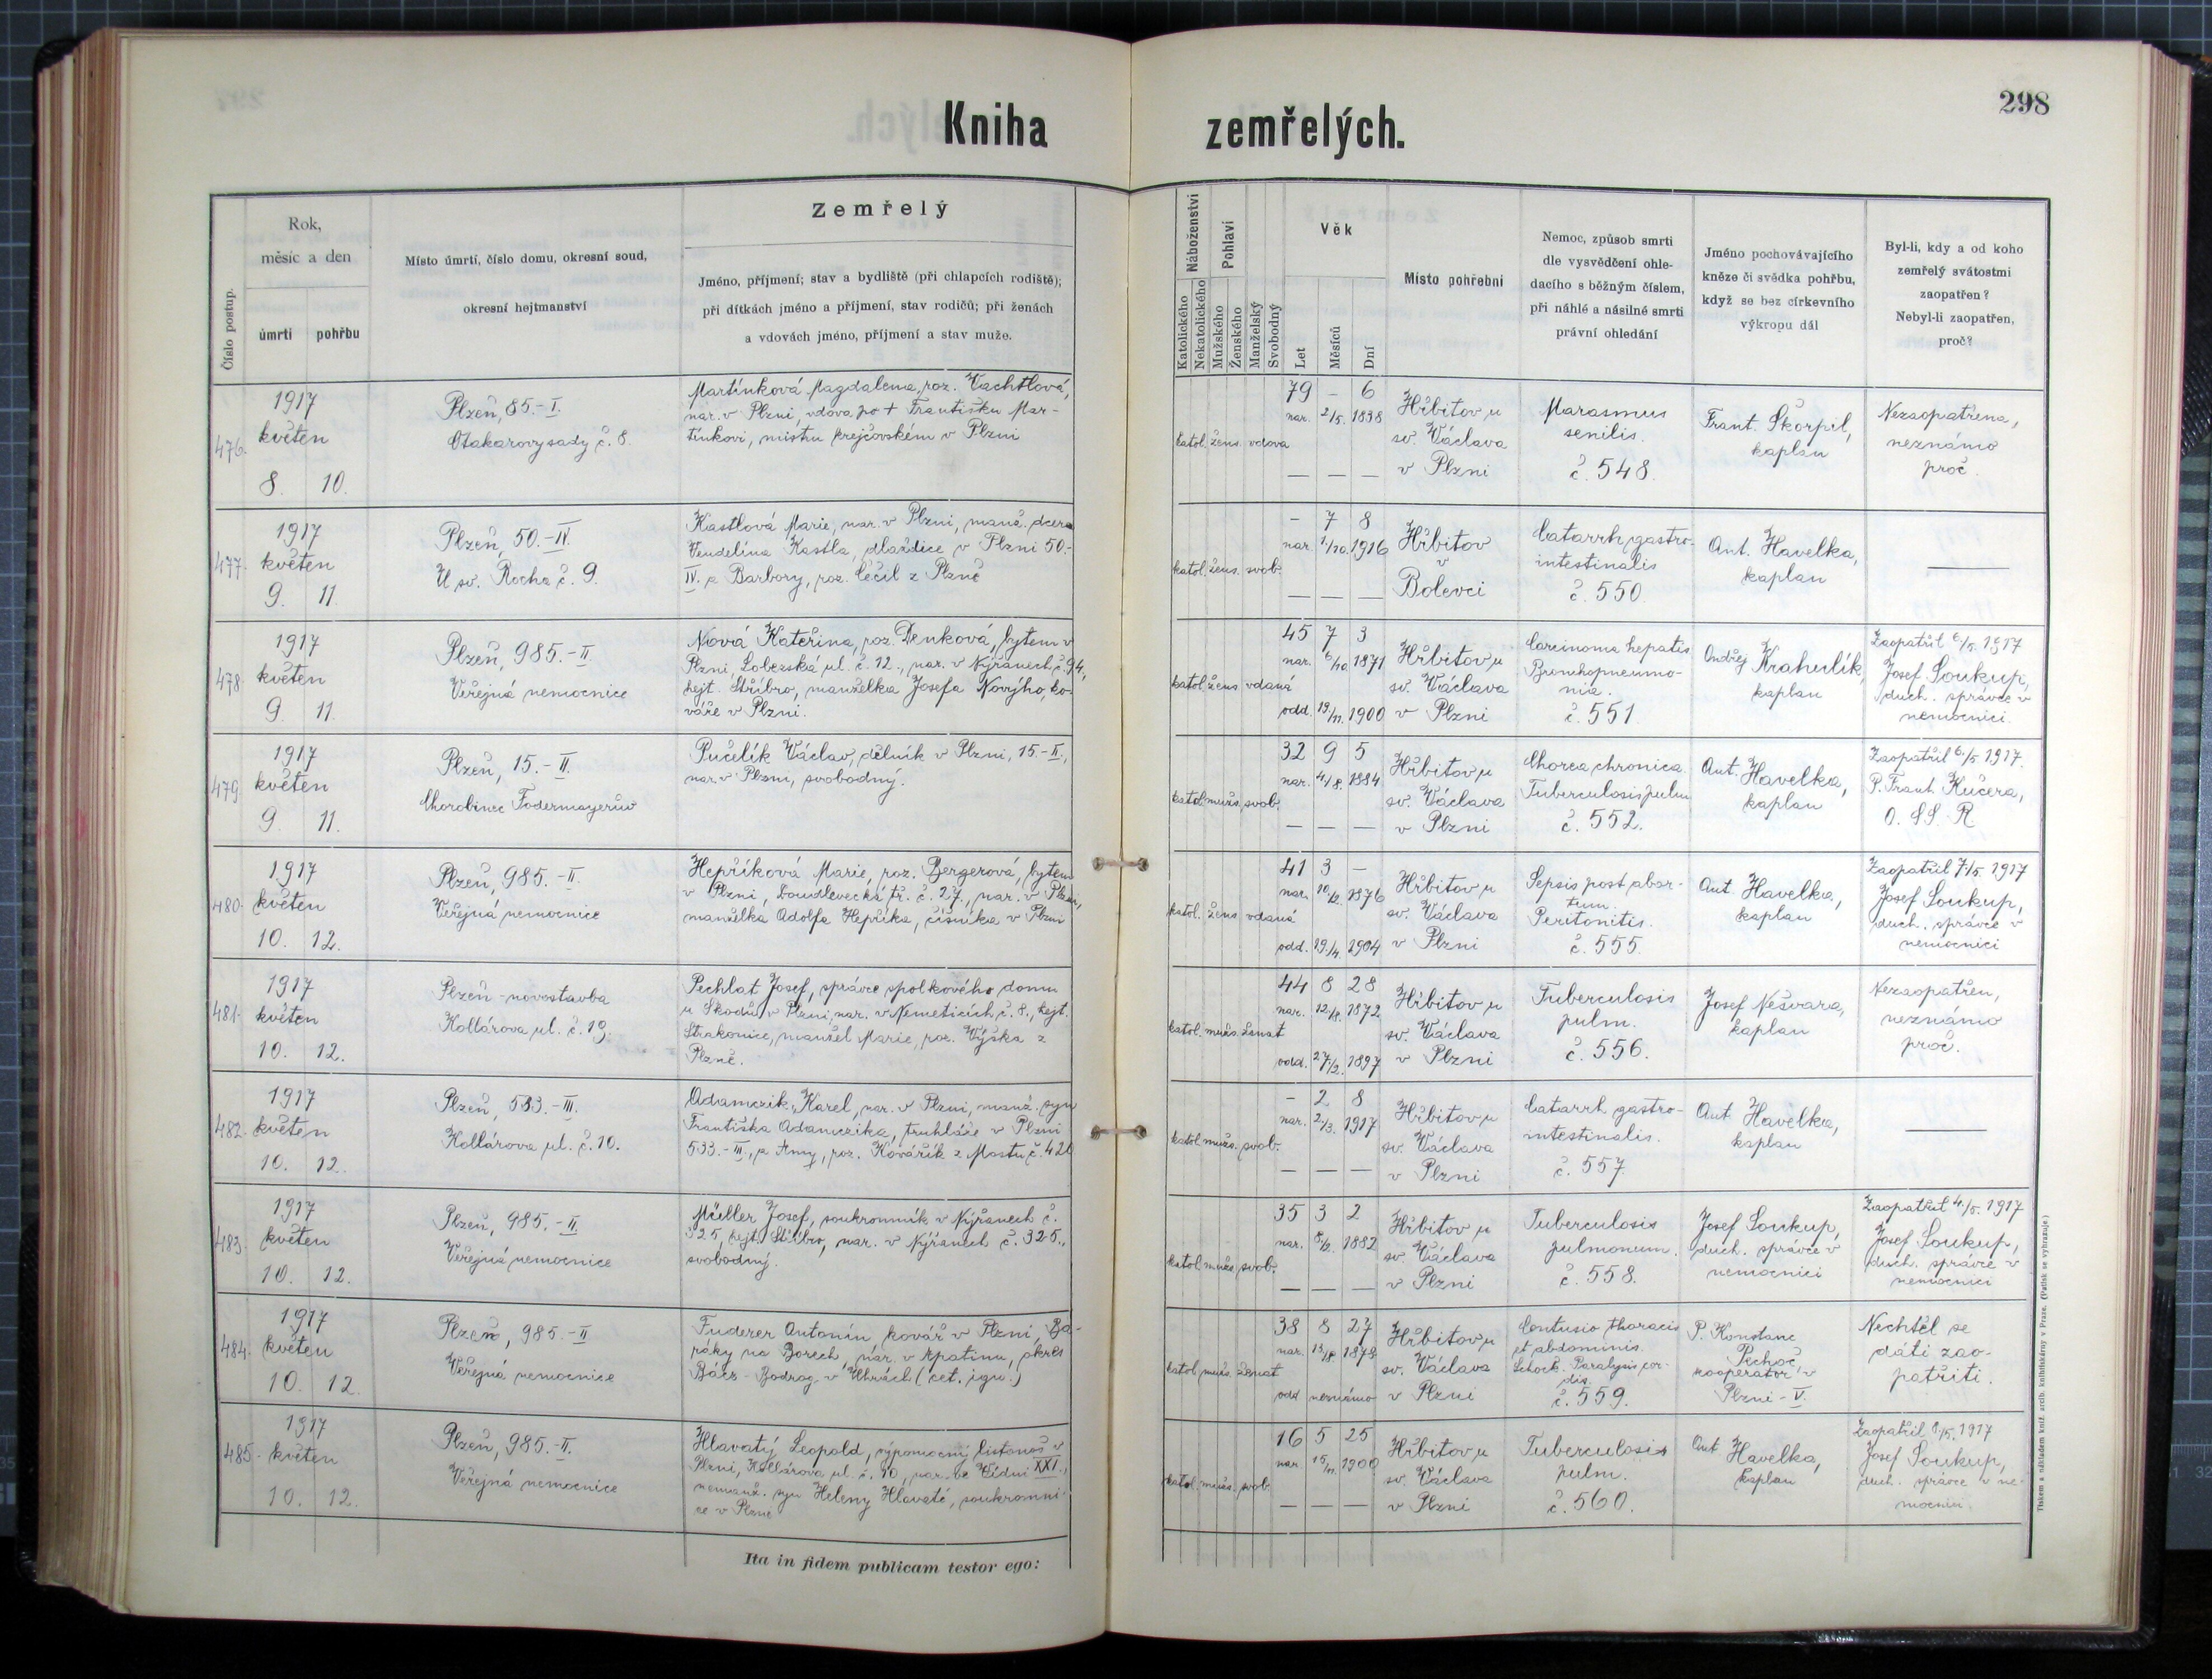 Kniha zemřelých.
298
Číslo postup.
Rok,
měsíc a den
úmrtí
pohřbu
Místo úmrtí, číslo domu, okresní soud,
okresní hejtmanství
Zemřelý
Jméno, příjmení; stav a bydliště (při chlapcích rodiště);
při dítkách jméno a příjmení, stav rodičů; při ženách
a vdovách jméno, příjmení a stav muže.
Náboženství
Katolického
Nekatolického
Pohlaví
Mužského
Ženského
Manželský
Svobodný
Věk
Let
Měsíců
Dní
Místo pohřební
Nemoc, způsob smrti
dle vysvědčení ohle-
dacího s běžným číslem,
při náhlé a násilné smrti
právní ohledání
Jméno pochovávajícího
kněze či svědka pohřbu,
když se bez církevního
výkropu dál
Byl-li, kdy a od koho
zemřelý svátostmi
zaopatřen?
Nebyl-li zaopatřen,
proč?
476.
1917
květen
8. 10.
Plzeň, 85.-I.
Otakarovy sady č. 8.
Martínková Magdalena, roz. Vachtlová,
nar. v Plzni, vdova po + Františku Mar-
tínkovi, mistru krejčovském v Plzni
katol. žens. vdova
79 – 6
nar. 2/5. 1838
— — —
Hřbitov u
sv. Václava
v Plzni
Marasmus
senilis.
č. 548.
Frant. Škorpil,
kaplan
Nezaopatřena,
neznámo
proč.
477.
1917
květen
9. 11.
Plzeň, 50.-IV.
U sv. Rocha č. 9.
Kastlová Marie, nar. v Plzni, manž. dcera
Vendelína Kastla, dlaždiče v Plzni 50.-
IV. a Barbory, roz. Cečil z Plzně
katol. žens. svob.
– 7 8
nar. 1./10. 1916
— — —
Hřbitov
v
Bolevci
Catarrh. gastro-
intestinalis
č. 550.
Ant. Havelka,
kaplan
—
478.
1917
květen
9. 11.
Plzeň, 985.-II
Veřejná nemocnice
Nová Kateřina, roz. Denková, bytem v
Plzni Lobezská ul. č. 12., nar. v Nýřanech č. 94.,
hejt. Stříbro, manželka Josefa Nového, ko-
váře v Plzni.
katol. žens vdaná
45 7 3
nar. 6/10. 1871
odd. 19./11. 1900
Hřbitov u
sv. Václava
v Plzni
Carcinoma hepatis
Bronchopneumo-
nia.
č. 551
Ondřej Krahulík,
kaplan
Zaopatřil 6./5. 1917
Josef Soukup,
duch. správce v
nemocnici.
479.
1917
květen
9. 11.
Plzeň, 15.-II.
Chorobinec Fodermayerův
Pučelík Václav, dělník v Plzni, 15-II.,
nar. v Plzni, svobodný.
katol. mužs. svob.
32 9 5
nar. 4/8. 1884
— — —
Hřbitov u
sv. Václava
v Plzni
Chorea chronica.
Tuberculosis pulm
č. 552.
Ant. Havelka,
kaplan
Zaopatřil 6./5 1917.
P. Frant. Kučera,
O. SS. R
480.
1917
květen
10. 12.
Plzeň, 985.-II.
Veřejná nemocnice
Hepříková Marie, roz. Bergerová, bytem
v Plzni, Doudlevecká tř. č. 27., nar. v Plzni,
manželka Adolfa Hepříka, číšníka v Plzni
katol. žens vdaná
41 3 –
nar. 10./2. 1876
odd. 19./4. 1904
Hřbitov u
sv. Václava
v Plzni
Sepsis post abor-
tum.
Peritonitis.
č. 555.
Ant. Havelka,
kaplan
Zaopatřil 7/5. 1917
Josef Soukup,
duch. správce v
nemocnici
481.
1917
květen
10. 12.
Plzeň-novostavba
Kollárova ul. č. 19.
Pechlat Josef, správce spolkového domu
u Škodů v Plzni, nar. v Němětících č. 8., hejt.
Strakonice, manžel Marie, roz. Výška z
Plzně.
katol. mužs. ženat
44 8 28
nar. 12./8. 1872
odd. 27./2. 1897
Hřbitov u
sv. Václava
v Plzni
Tuberculosis
pulm.
č. 556.
Josef Nešvara,
kaplan
Nezaopatřen,
neznámo
proč.
482.
1917
květen
10. 12.
Plzeň, 533.-III.
Kollárova ul. č. 10.
Adamczik Karel, nar. v Plzni, manž. syn
Františka Adamczika, truhláře v Plzni
533.-III., a Anny, roz. Kovářík z Mostu č. 420
katol. mužs. svob.
– 2 8
nar. 2/3. 1917
— — —
Hřbitov u
sv. Václava
v Plzni
Catarrh. gastro-
intestinalis.
č. 557.
Ant. Havelka,
kaplan
—
483.
1917
květen
10. 12.
Plzeň, 985.-II.
Veřejná nemocnice
Müller Josef, soukromník v Nýřanech č.
325, hejt. Stříbro, nar. v Nýřanech č. 325.,
svobodný.
katol. mužs. svob.
35 3 2
nar. 8/2. 1882
— — —
Hřbitov u
sv. Václava
v Plzni
Tuberculosis
pulmonum.
č. 558.
Josef Soukup,
duch. správce v
nemocnici
Zaopatřil 4./5. 1917
Josef Soukup,
duch. správce v
nemocnici
484.
1917
květen
10. 12.
Plzeň, 985.-II
Veřejná nemocnice
Fuderer Antonín kovář v Plzni, Ba-
ráky na Borech, nar. v Apatinu, okres
Bács-Bodrog v Uhrách (cet. ign.)
katol. mužs. ženat
38 8 27
nar. 13/8. 1878
odd neznámo
Hřbitov u
sv. Václava
v Plzni
Contusio thoracis
et abdominis.
Schock. Paralysis cor-
dis.
č. 559.
P. Konstanc
Pechoč,
kooperátor v
Plzni-V.
Nechtěl se
dáti zao-
patřiti.
485.
1917
květen
10. 12.
Plzeň, 985.-II.
Veřejná nemocnice
Hlavatý Leopold, výpomocný listonoš v
Plzni, Kollárova ul. č. 10, nar. ve Vídni XXI.,
nemanž. syn Heleny Hlavaté, soukromni-
ce v Plzni
katol. mužs. svob.
16 5 25
nar 15/11. 1900
— — —
Hřbitov u
sv. Václava
v Plzni
Tuberculosis
pulm.
č. 560.
Ant Havelka,
kaplan
Zaopatřil /5. 1917
Josef Soukup,
duch. správce v ne-
mocnici
Ita in fidem publicam testor ego:
Tiskem a nákladem kníž. arcib. knihtiskárny v Praze. (Patisk se vyhrazuje.)